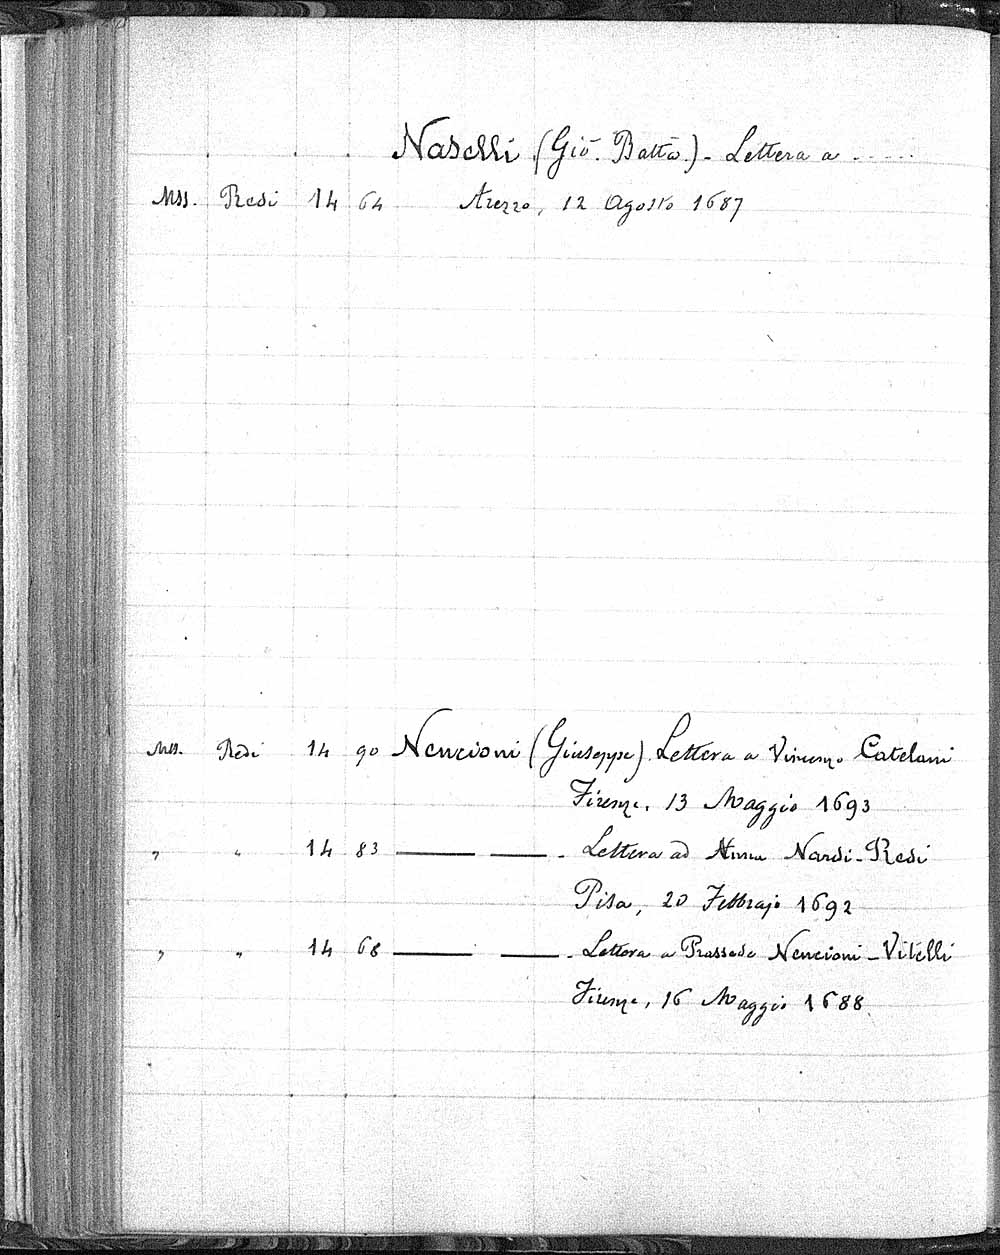 Naselli (Giō. Battā.) - Lettera a .....
Mss. Redi 14 64 Arezzo, 12 Agosto 1687
Mss. Redi 14 90 Nencioni (Giuseppe) Lettera a Vincenzo Catelani
Firenze, 13 Maggio 1693
" " 14 83 —— —— - Lettera ad Anna Nardi-Redi
Pisa, 20 Febbrajo 1692
" " 14 68 —— —— - Lettera a Prassede Nencioni-Vitelli
Firenze, 16 Maggio 1688